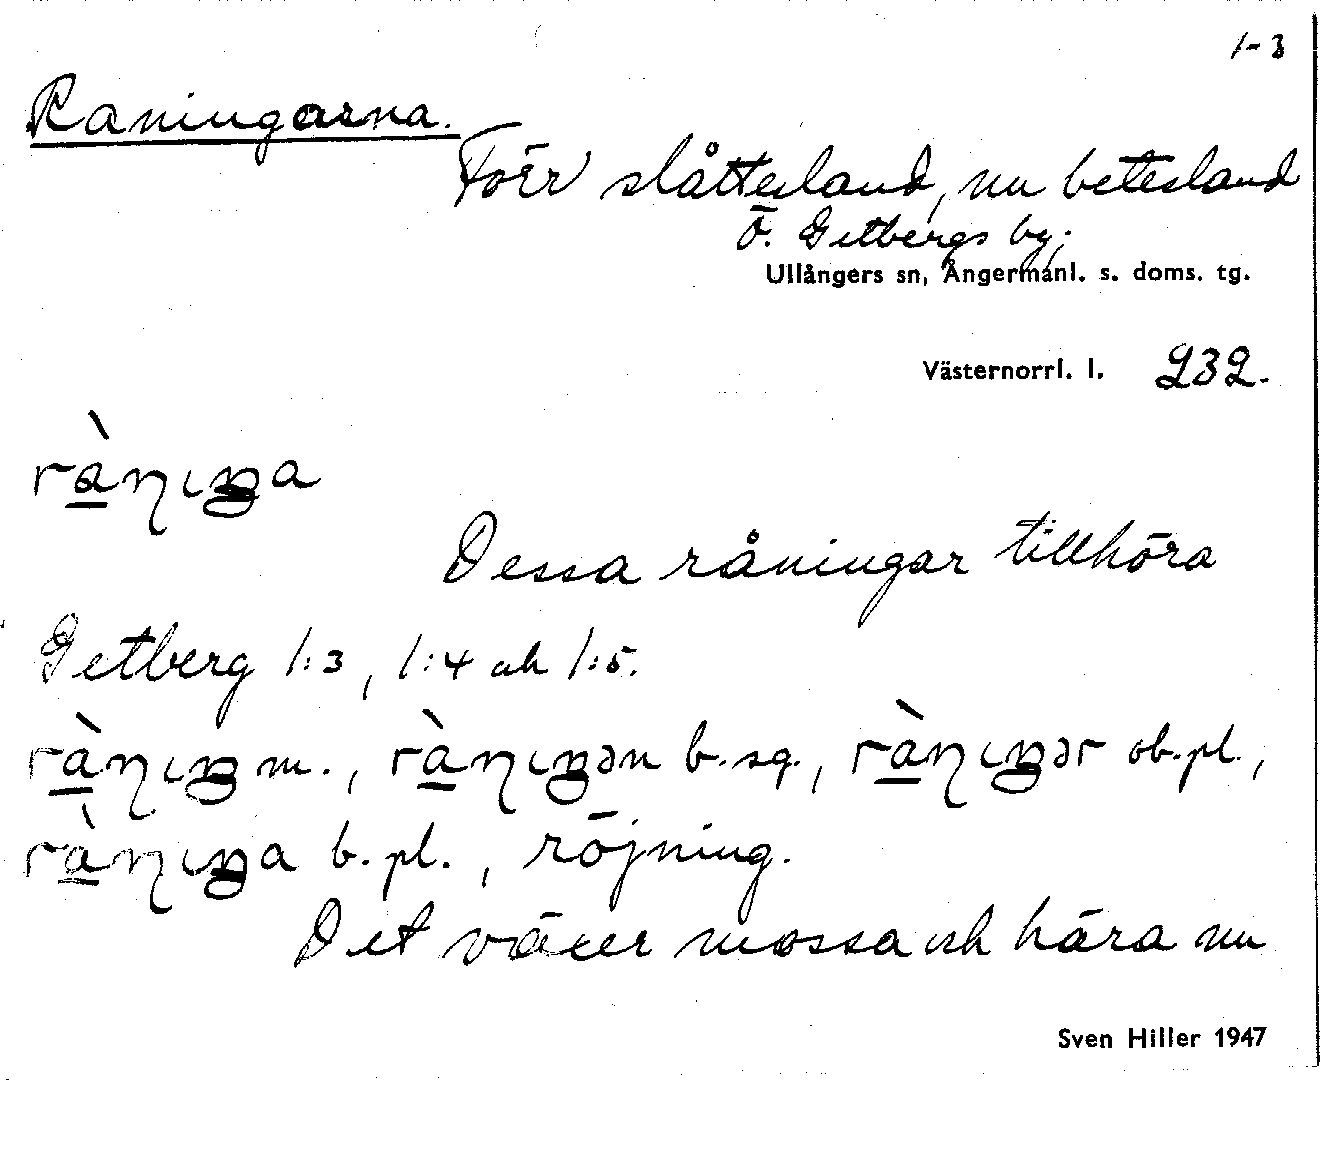 1-3
Raningarna.
Förr slåttesland, nu betesland
Ö. Getbergs by;
Ullångers sn, Ångermanl. s. doms. tg.
Västernorrl. l. 232.
rànɩŋa
Dessa råningar tillhöra
Getberg 1:3, 1:4 och 1:5.
rànɩŋ m., rànɩŋən b. sg., rànɩŋər ob. pl.,
rànɩŋa b. pl., röjning.
Det växer mossa och hära nu
Sven Hiller 1947